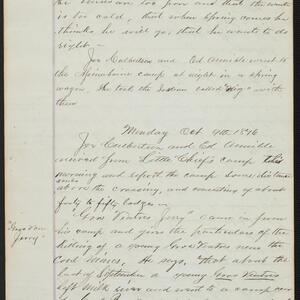 he horses are too poor and that the winter
is too cold, that when Spring comes he
thinks he will go, that he wants to do
right —
Joe Culbertson and Ed Aumible went to
the Assinaboine camp at night in a spring
wagon. She took the Indian called "Dog" with
them
Monday Oct 9th 1876
Joe Culbertson and Ed Aumible
arrived from Little Chief's camp this
morning and report the camp some distance
above the crossing, and consisting of about
forty to fifty lodges —
"Gros Ventres Jerry" came in from
"Gros Ven
Jerry"
his camp and gives the particulars of the
killing of a young Gros Ventres near the
Coal Mines. He says, that about the
last of September a young Gros Ventres
left Milk River and went to a camp